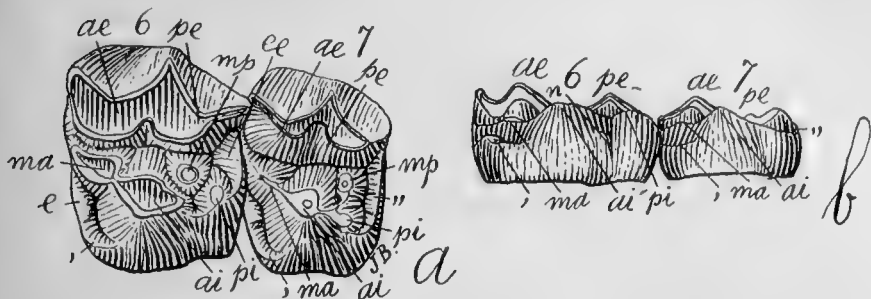 ae 6 pe mp ee ae 7 pe
ma mp
e "
, pi
ai pi , ma J.B. ai a
ae n 6 pe ae 7 pe
"
, ma ai pi , ma ai b